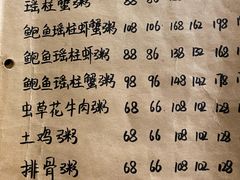 瑶柱蟹粥
鲍鱼瑶柱虾蟹粥 108 106 168 162 198
鲍鱼瑶柱虾粥 88 86 138 132 168
鲍鱼瑶柱蟹粥 98 96 148 142 178
虫草花牛肉粥 68 66 108 102 128
土鸡粥 68 66 108 102 128
排骨粥 68 66 108 102 128